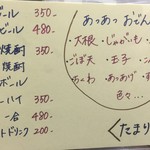 ール 350-
ビール 480-
焼酎 350-
焼酎
ボール
ーハイ 350-
一合 480-
トドリンク 200-
あっあっ おでん
・大根・じゃがいも
・ごぼ天・玉子
・ちーわ・あつあげ
色々...
くたまり